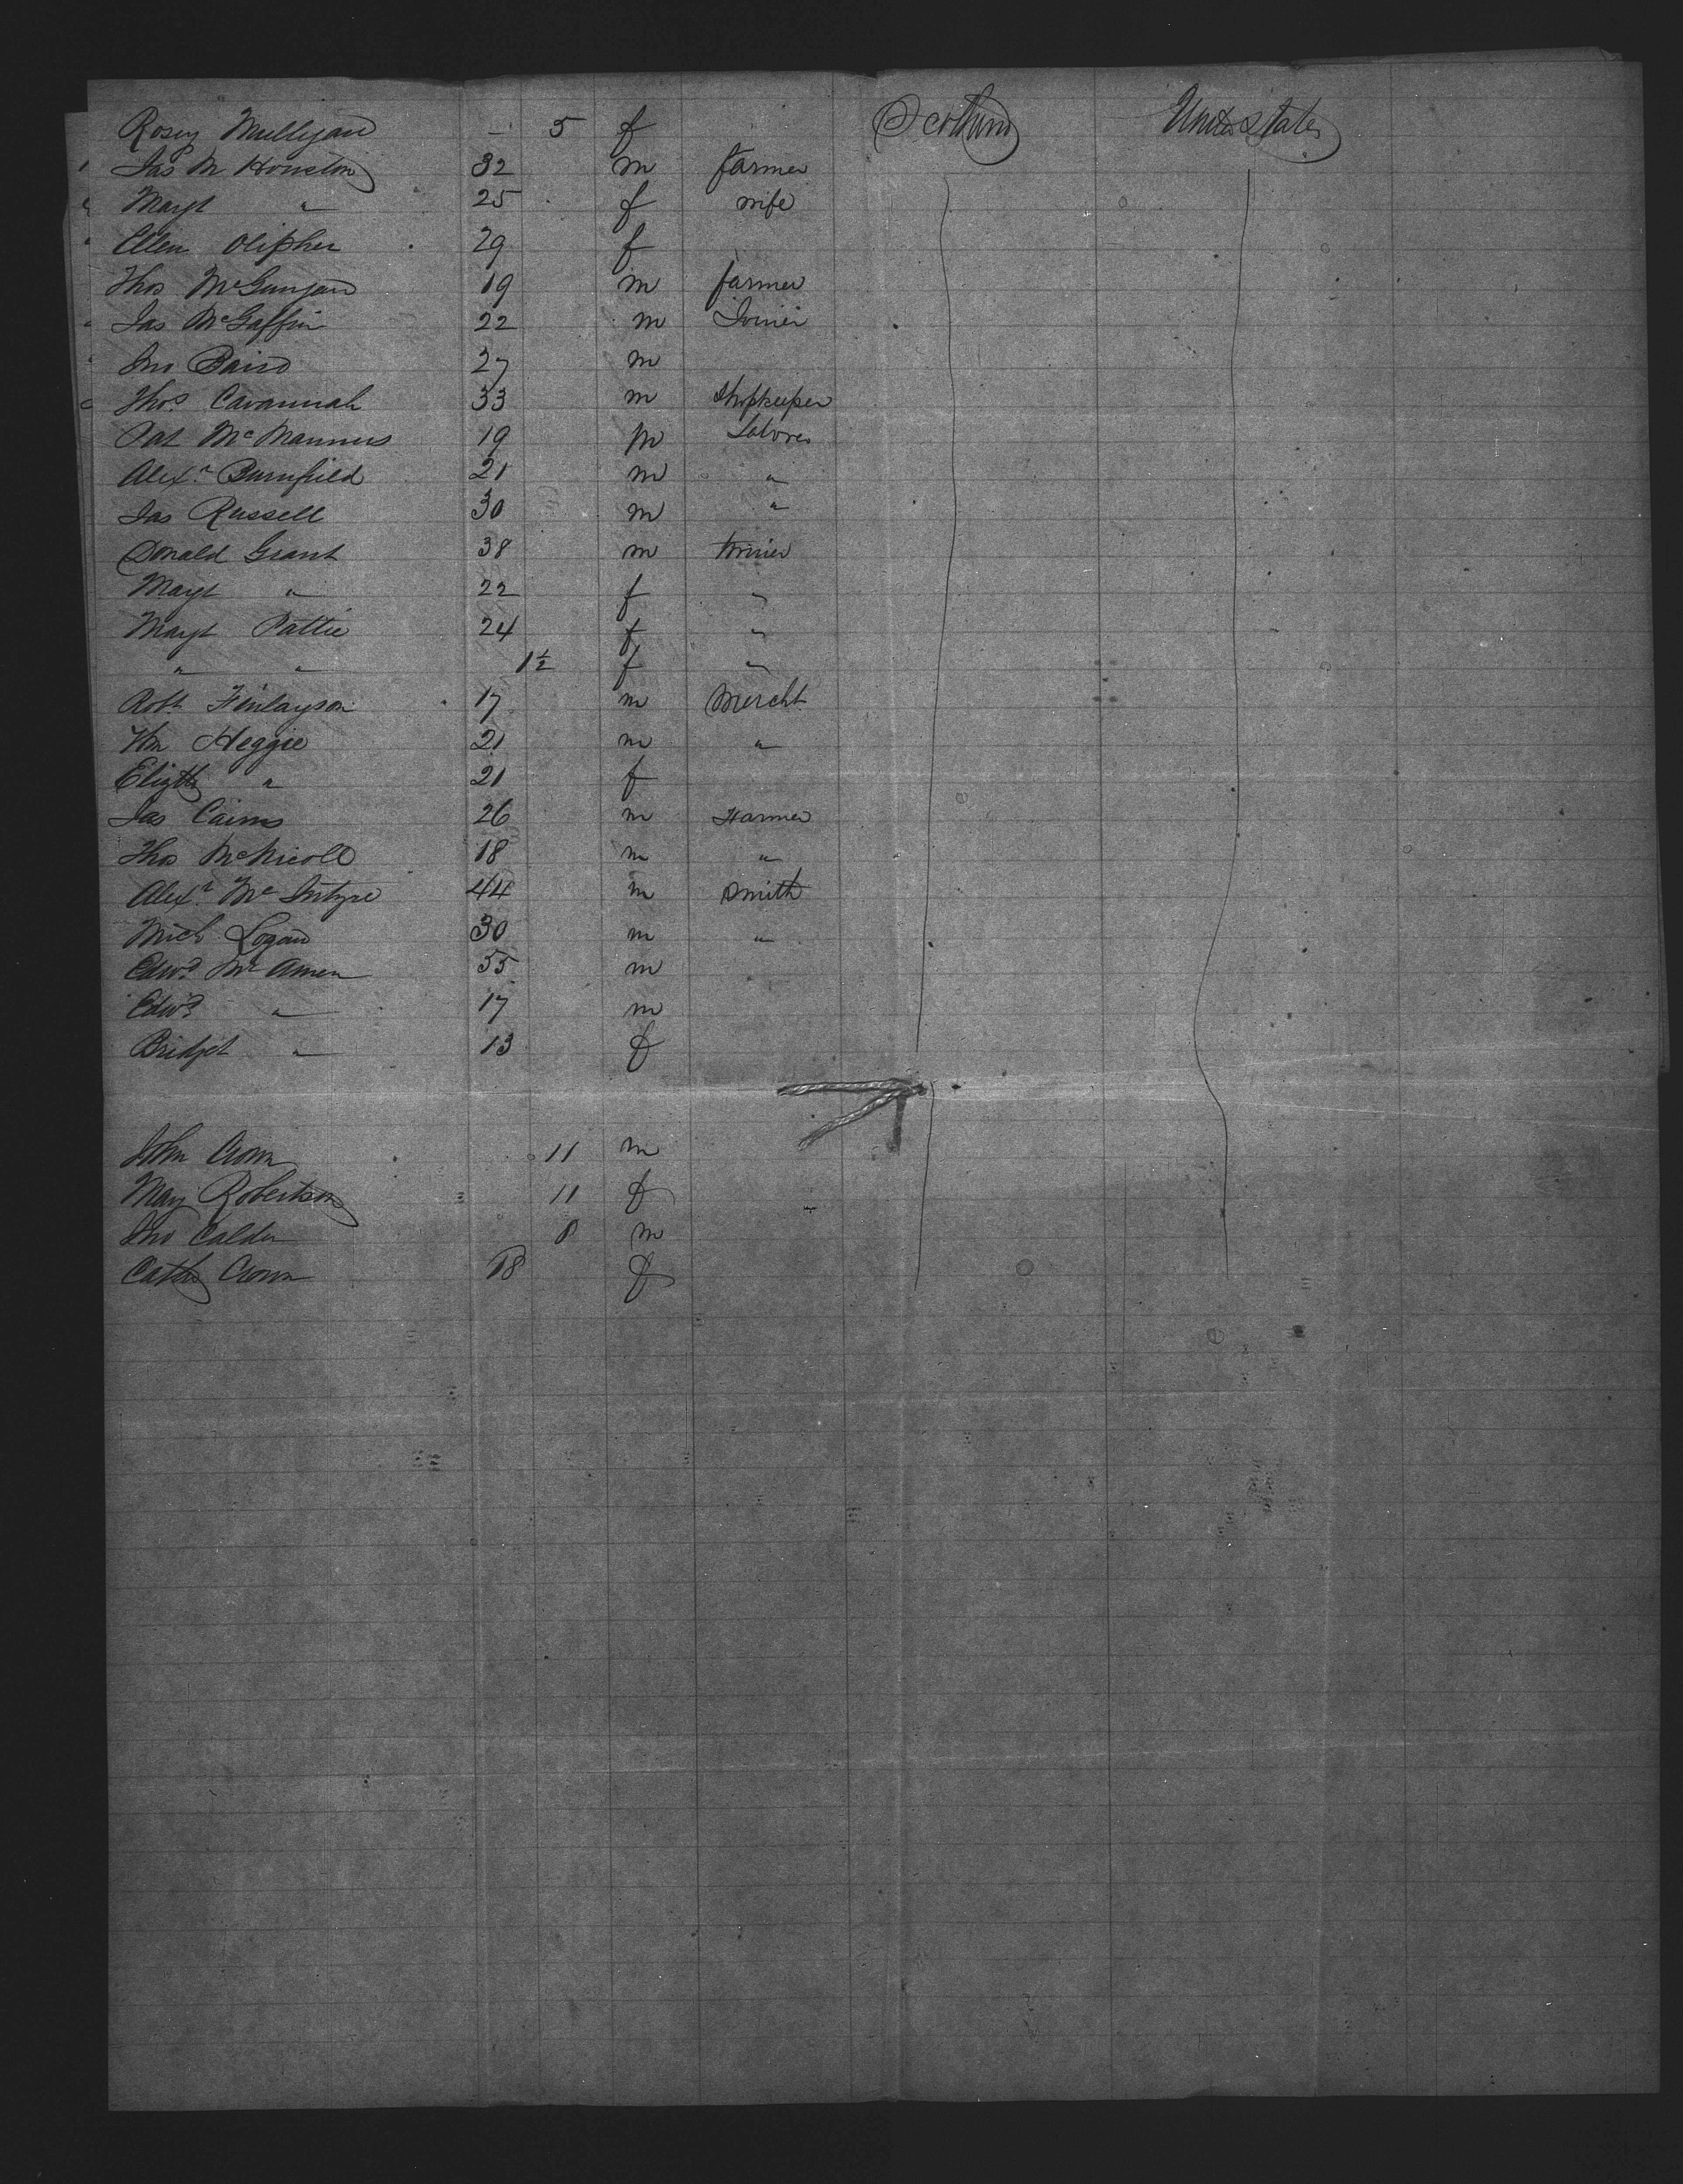 Rosey Mulligan — 5 f Scotland United States
Jas M Houston 32 m farmer
Margt " 25 f wife
Ellen Olipher 29 f
Thos McGunjan 19 m farmer
Jas McGaffin 22 m Joiner
Jno Baird 27 m
Thos Cavannah 33 m Shopkeeper
Pat McMannus 19 m Laborer
Alexr Burnfield 21 m "
Jas Russell 30 m "
Donald Grant 38 m
Margt " 22 f "
Margt Pattie 24 f "
" " 1½ f "
Robt Finlayson 17 m Mercht
Wm Heggie 21 m "
Elizth " 21 f
Jas Cairns 26 m Farmer
Thos McNicoll 18 m "
Alexr McIntyre 44 m Smith
Mich Logan 30 m "
Edwd Mc Amen 55 m
Edwd " 17 m
Bridget " 13 f
John 11 m
Mary Robertson 11 f
Jno Calder 8 m
Cath 18 f